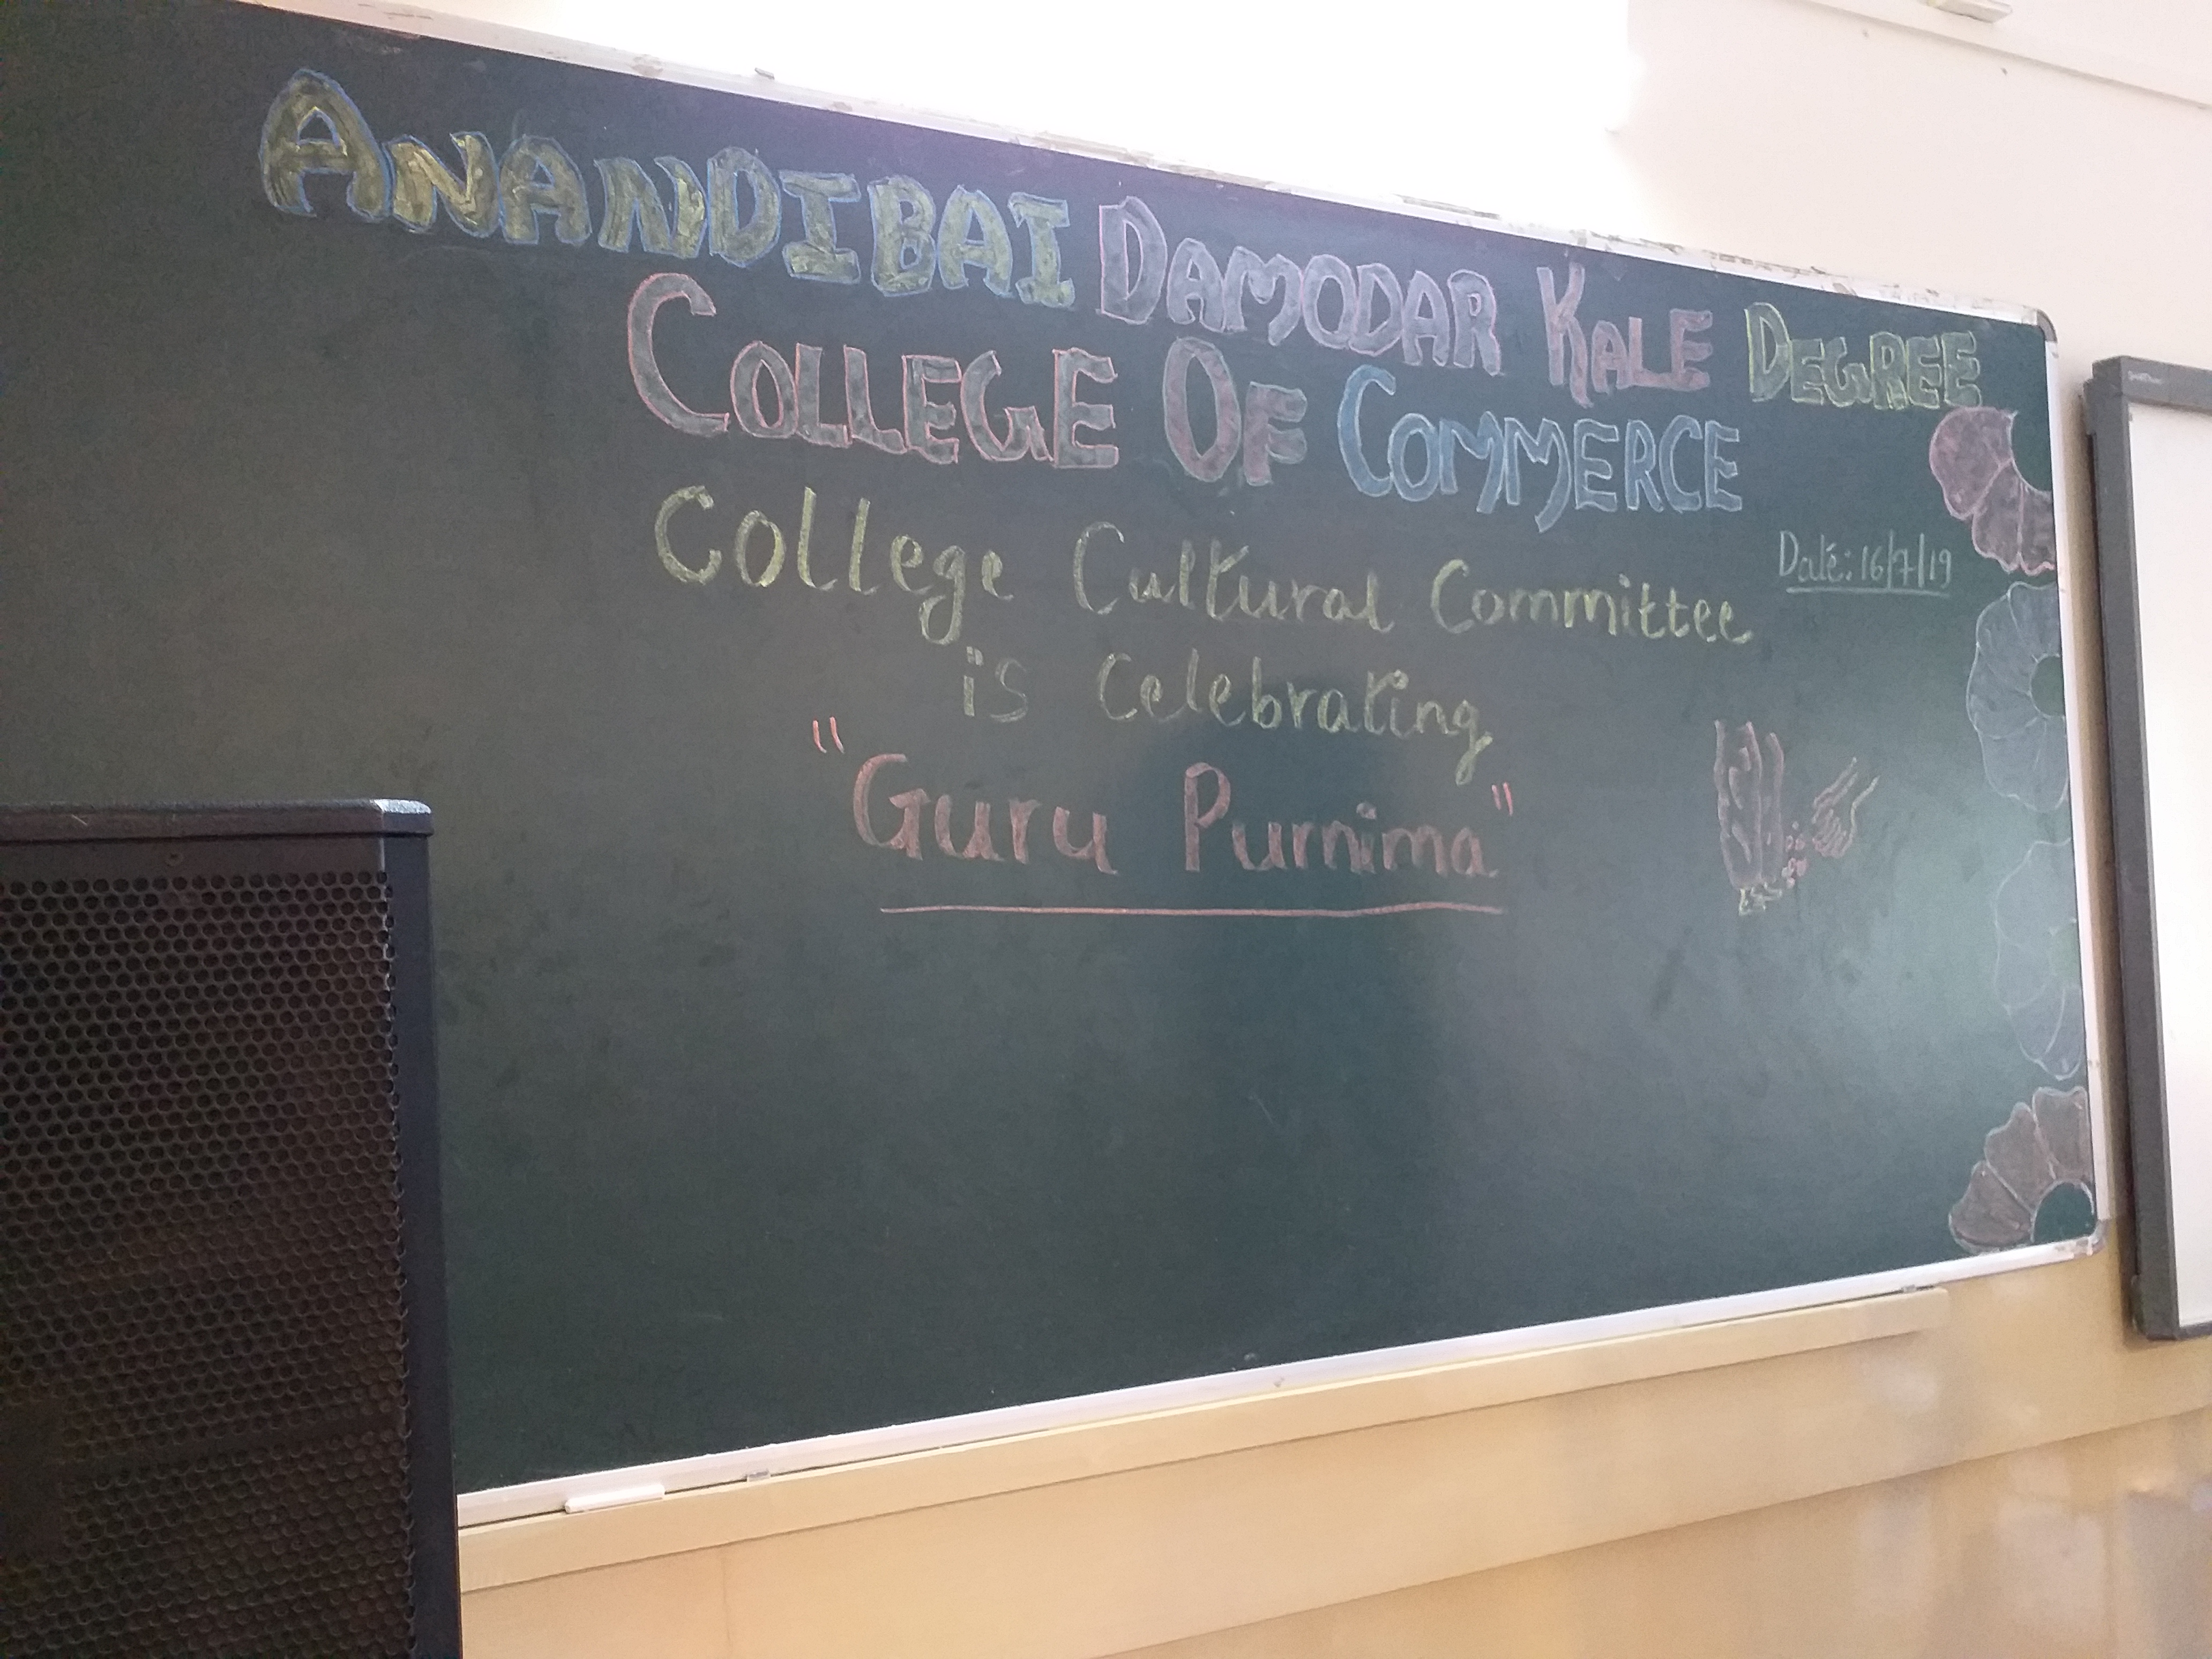 ANANDIBAI DAMODAR KALE DEGREE
COLLEGE OF COMMERCE
Date: 16/7/19
College Cultural Committee
is Celebrating
"Guru Purnima"